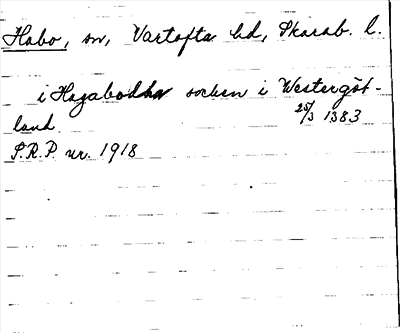 Habo, sn, Vartofta hd, Skarab. l.
i Hagabodha socken i Westergöt-
land 25/3 1383
S.R.P. nr. 1918